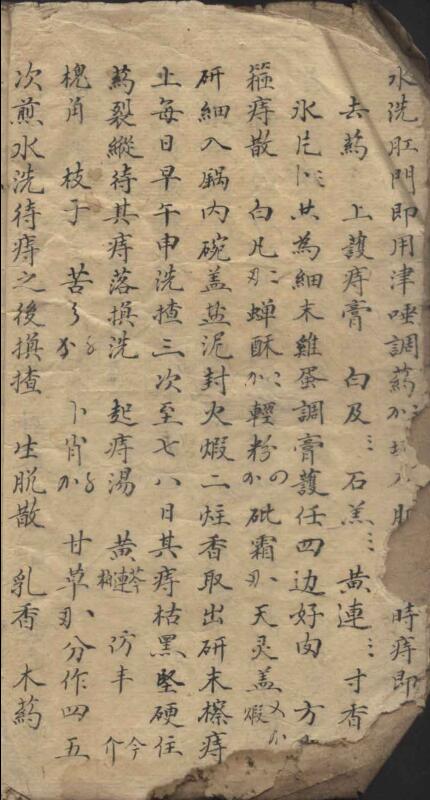 水洗肛門即用津唾調葯 時痔即
去葯 上護痔膏 白及 石羔 黃連 寸香
氷片 共為細末雞蛋調膏護任四边好肉 方
箍痔散 白凡 蟬酥 輕粉 砒霜 天灵盖 煆
研細入鍋內碗盖盐泥封火煆二炷香取出研末擦痔
上每日早午申洗揸三次至七八日其痔枯黑堅硬住
葯裂縫待其痔落換洗 起痔湯 黃芩 連 防丰
槐角 枝子 苦 卜肖 甘草 分作四五
次煎水洗待痔之後換揸 生脫散 乳香 木葯